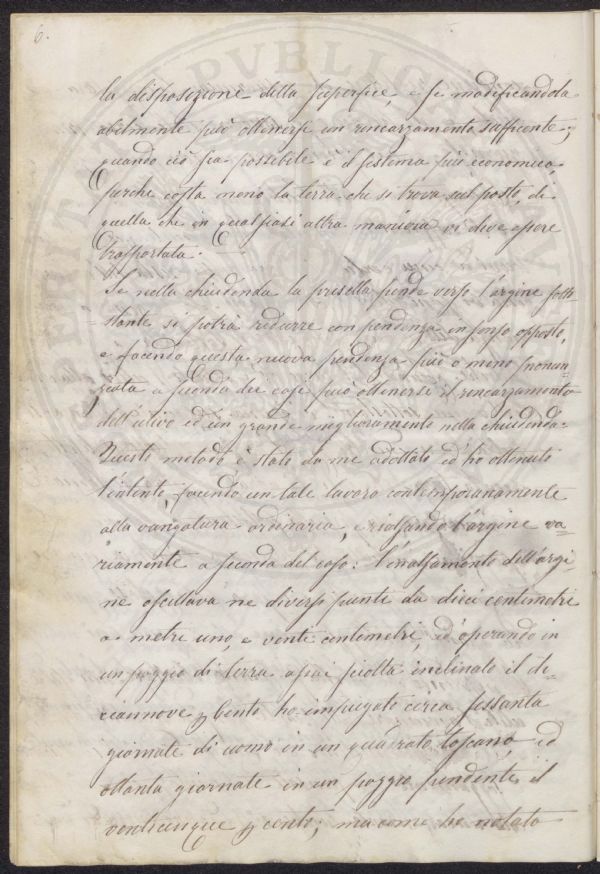 6.
la disposizione della superfice, e se modificandola
abilmente può ottenersi un rincarzamento sufficente;
quando ciò sia possibile è il sistema più economico,
perche costa meno la terra che si trova sul posto, di
quella che in qualsiasi altra maniera vi deve essere
trasportata.
Se nella chiudenda la presella pende verso l'argine sott=
=stante si potrà ridurre con pendenza in senso opposto,
e facendo questa nuova pendenza più o meno pronun=
=ziata a seconda dei casi può ottenersi il rincarzamento
dell'ulivo ed un grande miglioramento nella chiudenda.
Questo metodo è stato da me adottato ed ho ottenuto
l'intento, facendo un tale lavoro contemporaneamente
alla vangatura ordinaria, e rialzando l'argine va=
riamente a seconda del caso: l'inalzamento dell'argi=
ne oscillava ne diversi punti da dieci centimetri
a metri uno, e venti centimetri, ed operando in
un poggio di terra assai sciolta inclinato il di=
ciannove p cento ho impiegato circa sessanta
giornate di uomo in un quadrato toscano, ed
ottanta giornate in un poggio pendente il
venticinque p cento; ma come ho notato